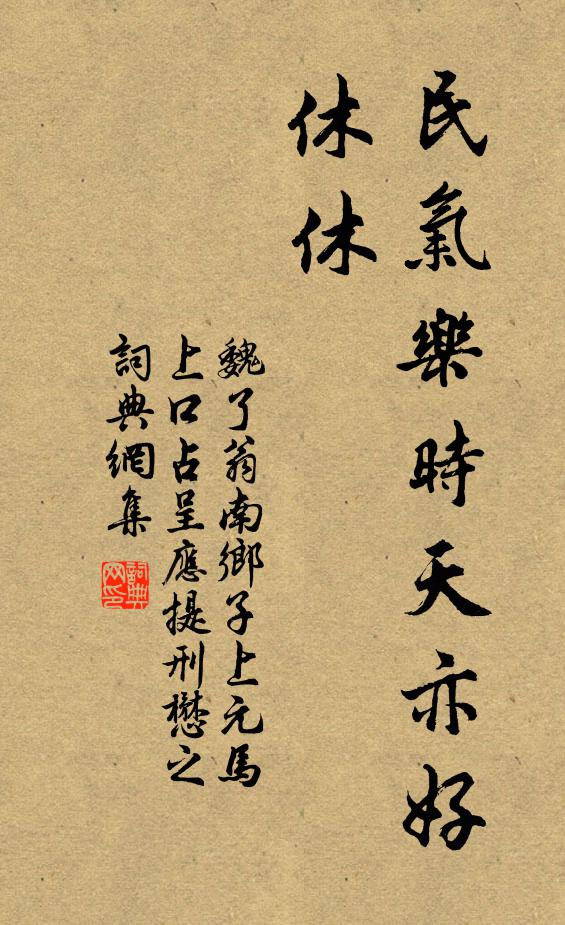 民氣樂時天亦好
休休
魏了翁南鄉子上元馬
上口占呈應提刑懋之
詞典網集
詞典网印